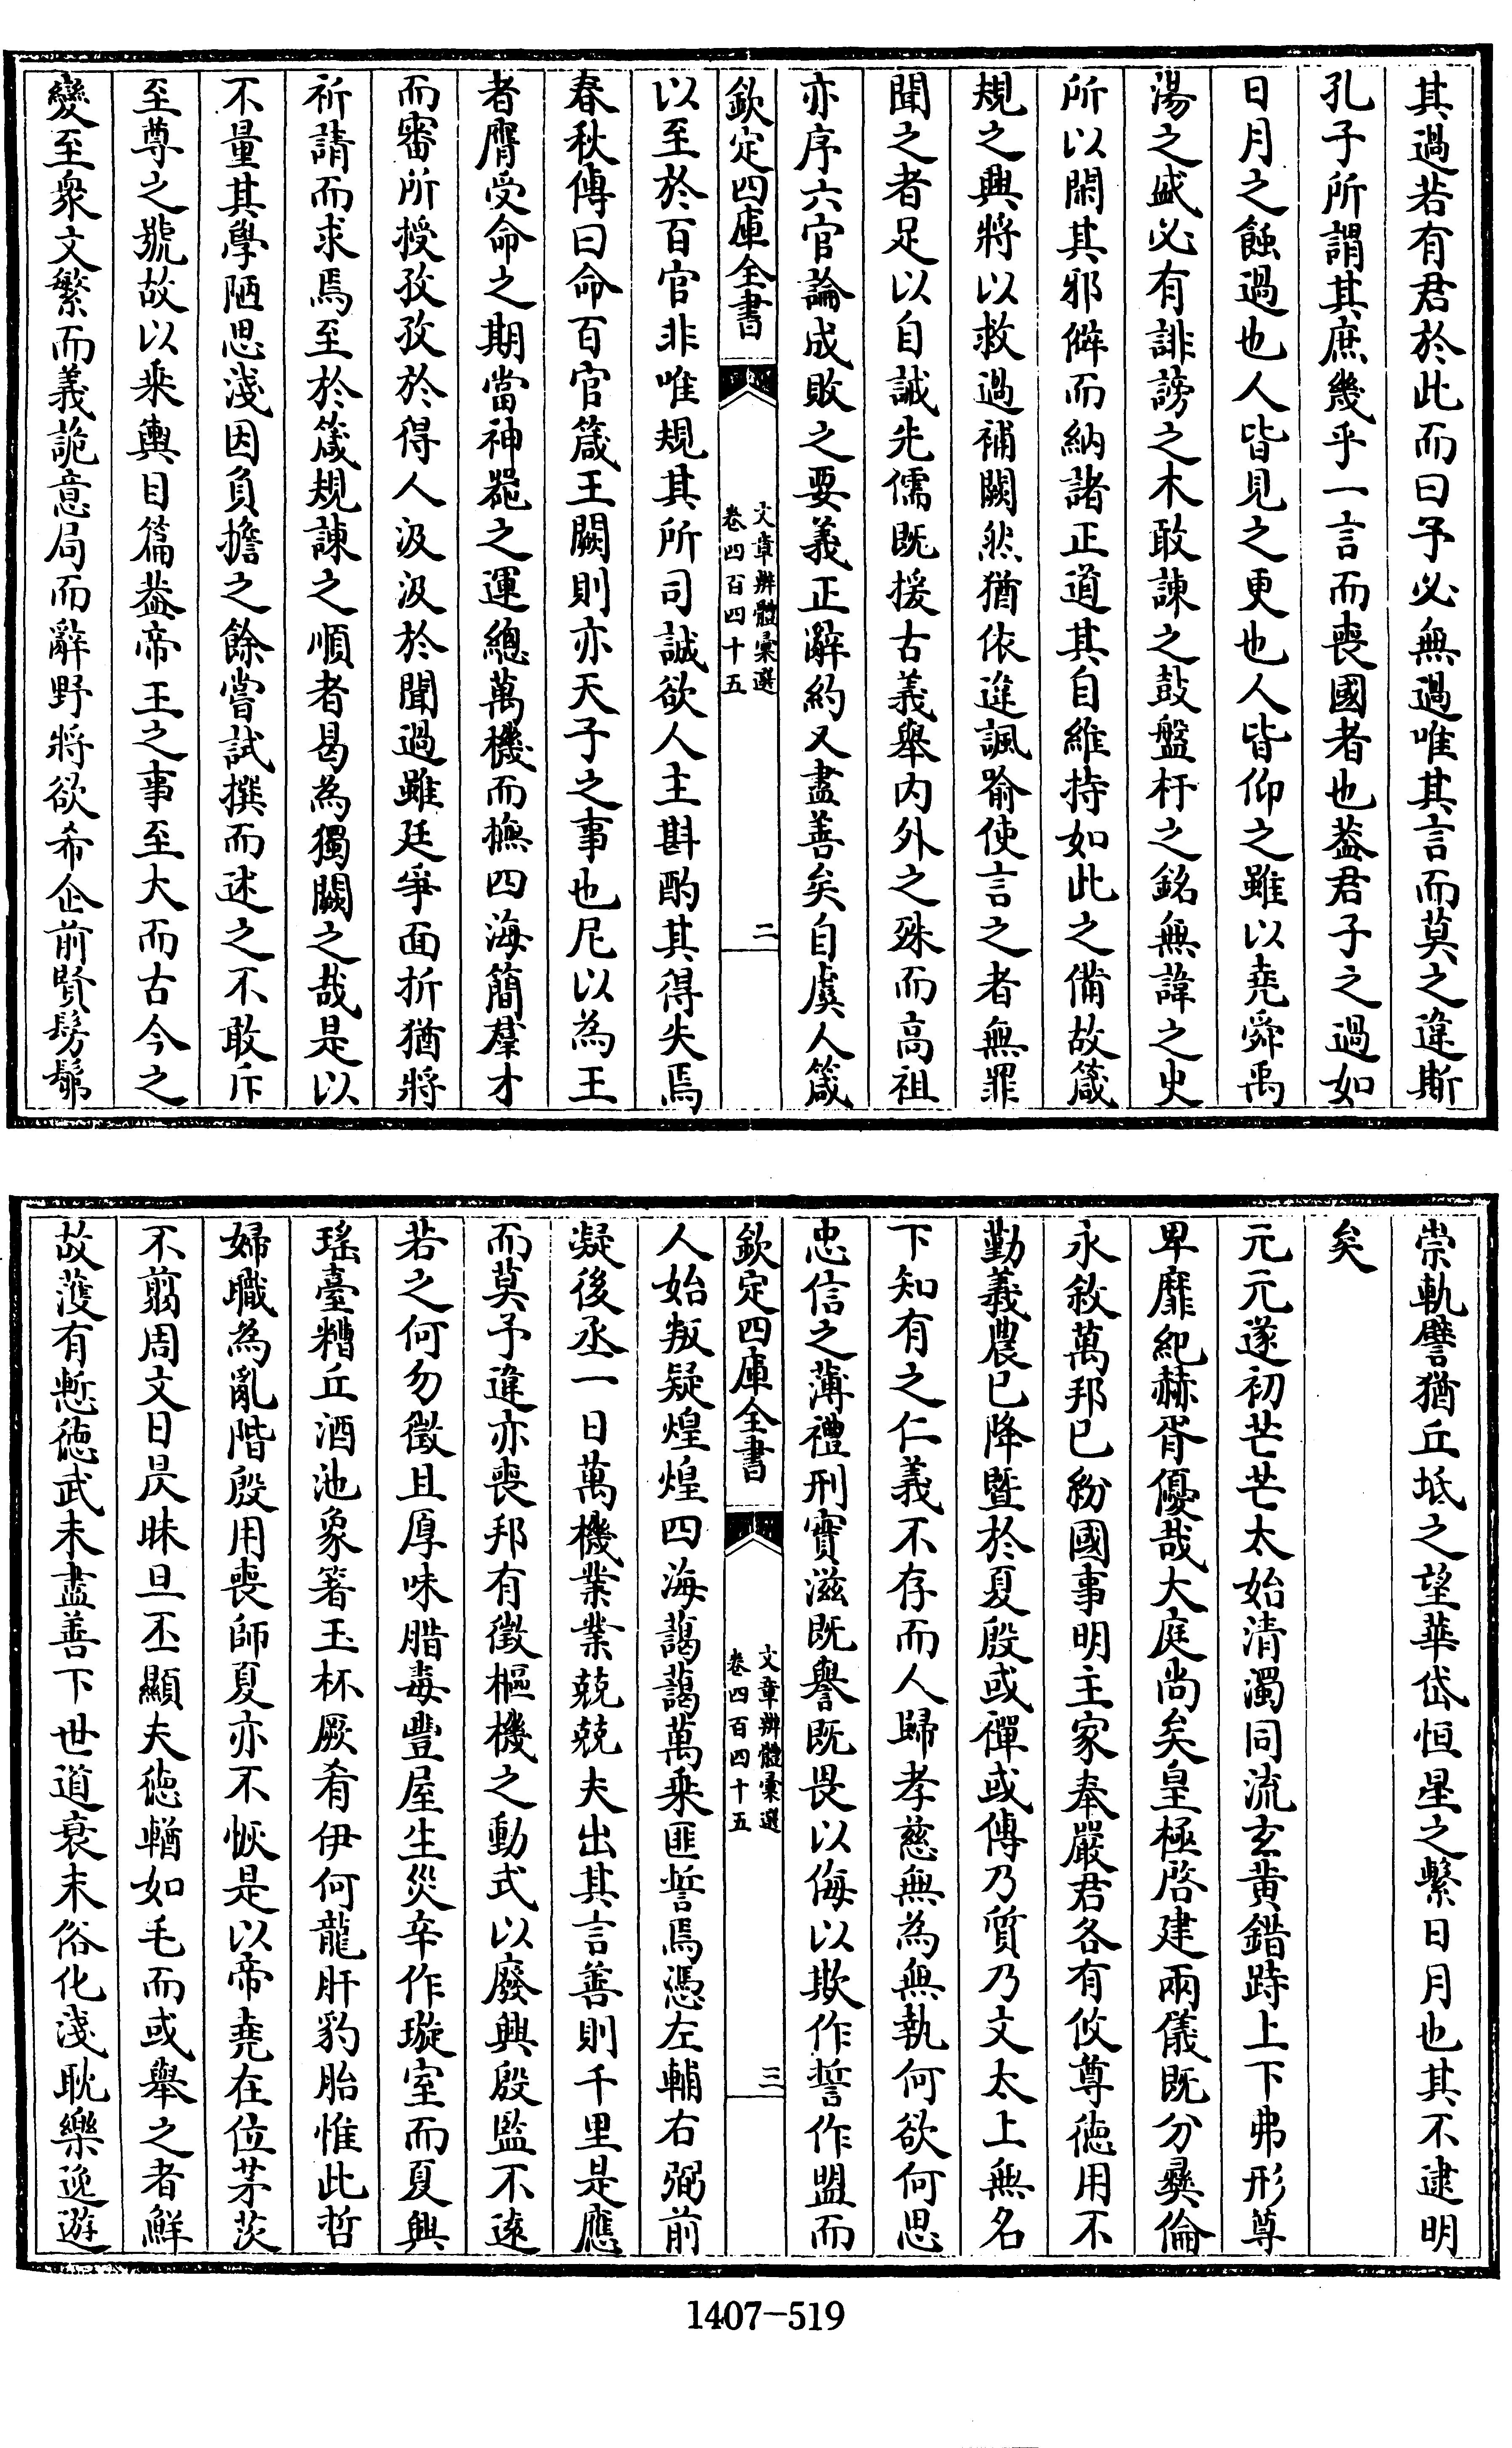 其過若有君於此而曰予必無過唯其言而莫之違斯
孔子所謂其庶幾乎一言而喪國者也葢君子之過如
日月之蝕過也人皆見之更也人皆仰之雖以堯舜禹
湯之盛必有誹謗之木敢諫之鼓盤杅之銘無諱之史
所以閑其邪僻而納諸正道其自維持如此之備故箴
規之興將以救過補闕然猶依違諷喻使言之者無罪
聞之者足以自誡先儒既援古義舉内外之殊而高祖
亦序六官論成敗之要義正辭約又盡善矣自虞人箴
欽定四庫全書
文章辨體彙選
卷四百四十五
二
以至於百官非唯規其所司誠欲人主斟酌其得失焉
春秋傳曰命百官箴王闕則亦天子之事也尼以為王
者膺受命之期當神器之運總萬機而撫四海簡羣才
而審所授孜孜於得人汲汲於聞過雖廷爭面折猶將
祈請而求焉至於箴規諫之順者曷為獨闕之哉是以
不量其學陋思淺因負擔之餘嘗試撰而述之不敢斥
至尊之號故以乘輿目篇葢帝王之事至大而古今之
變至衆文繁而義詭意局而辭野將欲希企前賢髣髴
崇軌譬猶丘坻之望華岱恒星之繫日月也其不逮明
矣
元元遂初芒芒太始清濁同流玄黄錯跱上下弗形尊
卑靡紀赫胥優哉大庭尚矣皇極啓建兩儀既分彞倫
永敘萬邦已紛國事明主家奉嚴君各有攸尊徳用不
勤義農已降暨於夏殷或禪或傳乃質乃文太上無名
下知有之仁義不存而人歸孝慈無為無執何欲何思
忠信之薄禮刑實滋既譽既畏以侮以欺作誓作盟而
欽定四庫全書
文章辨體彙選
卷四百四十五
三
人始叛疑煌煌四海藹藹萬乘匪誓焉憑左輔右弼前
凝後丞一日萬機業業兢兢夫出其言善則千里是應
而莫予違亦喪邦有徵樞機之動式以廢興殷監不遠
若之何勿徵且厚味腊毒豐屋生災辛作璇室而夏興
瑤臺糟丘酒池象箸玉杯厥肴伊何龍肝豹胎惟此哲
婦職為亂階殷用喪師夏亦不恢是以帝堯在位茅茨
不翦周文日昃昧旦丕顯夫徳輶如毛而或舉之者鮮
故濩有慙徳武未盡善下世道衰末俗化淺耽樂逸遊
1407-519